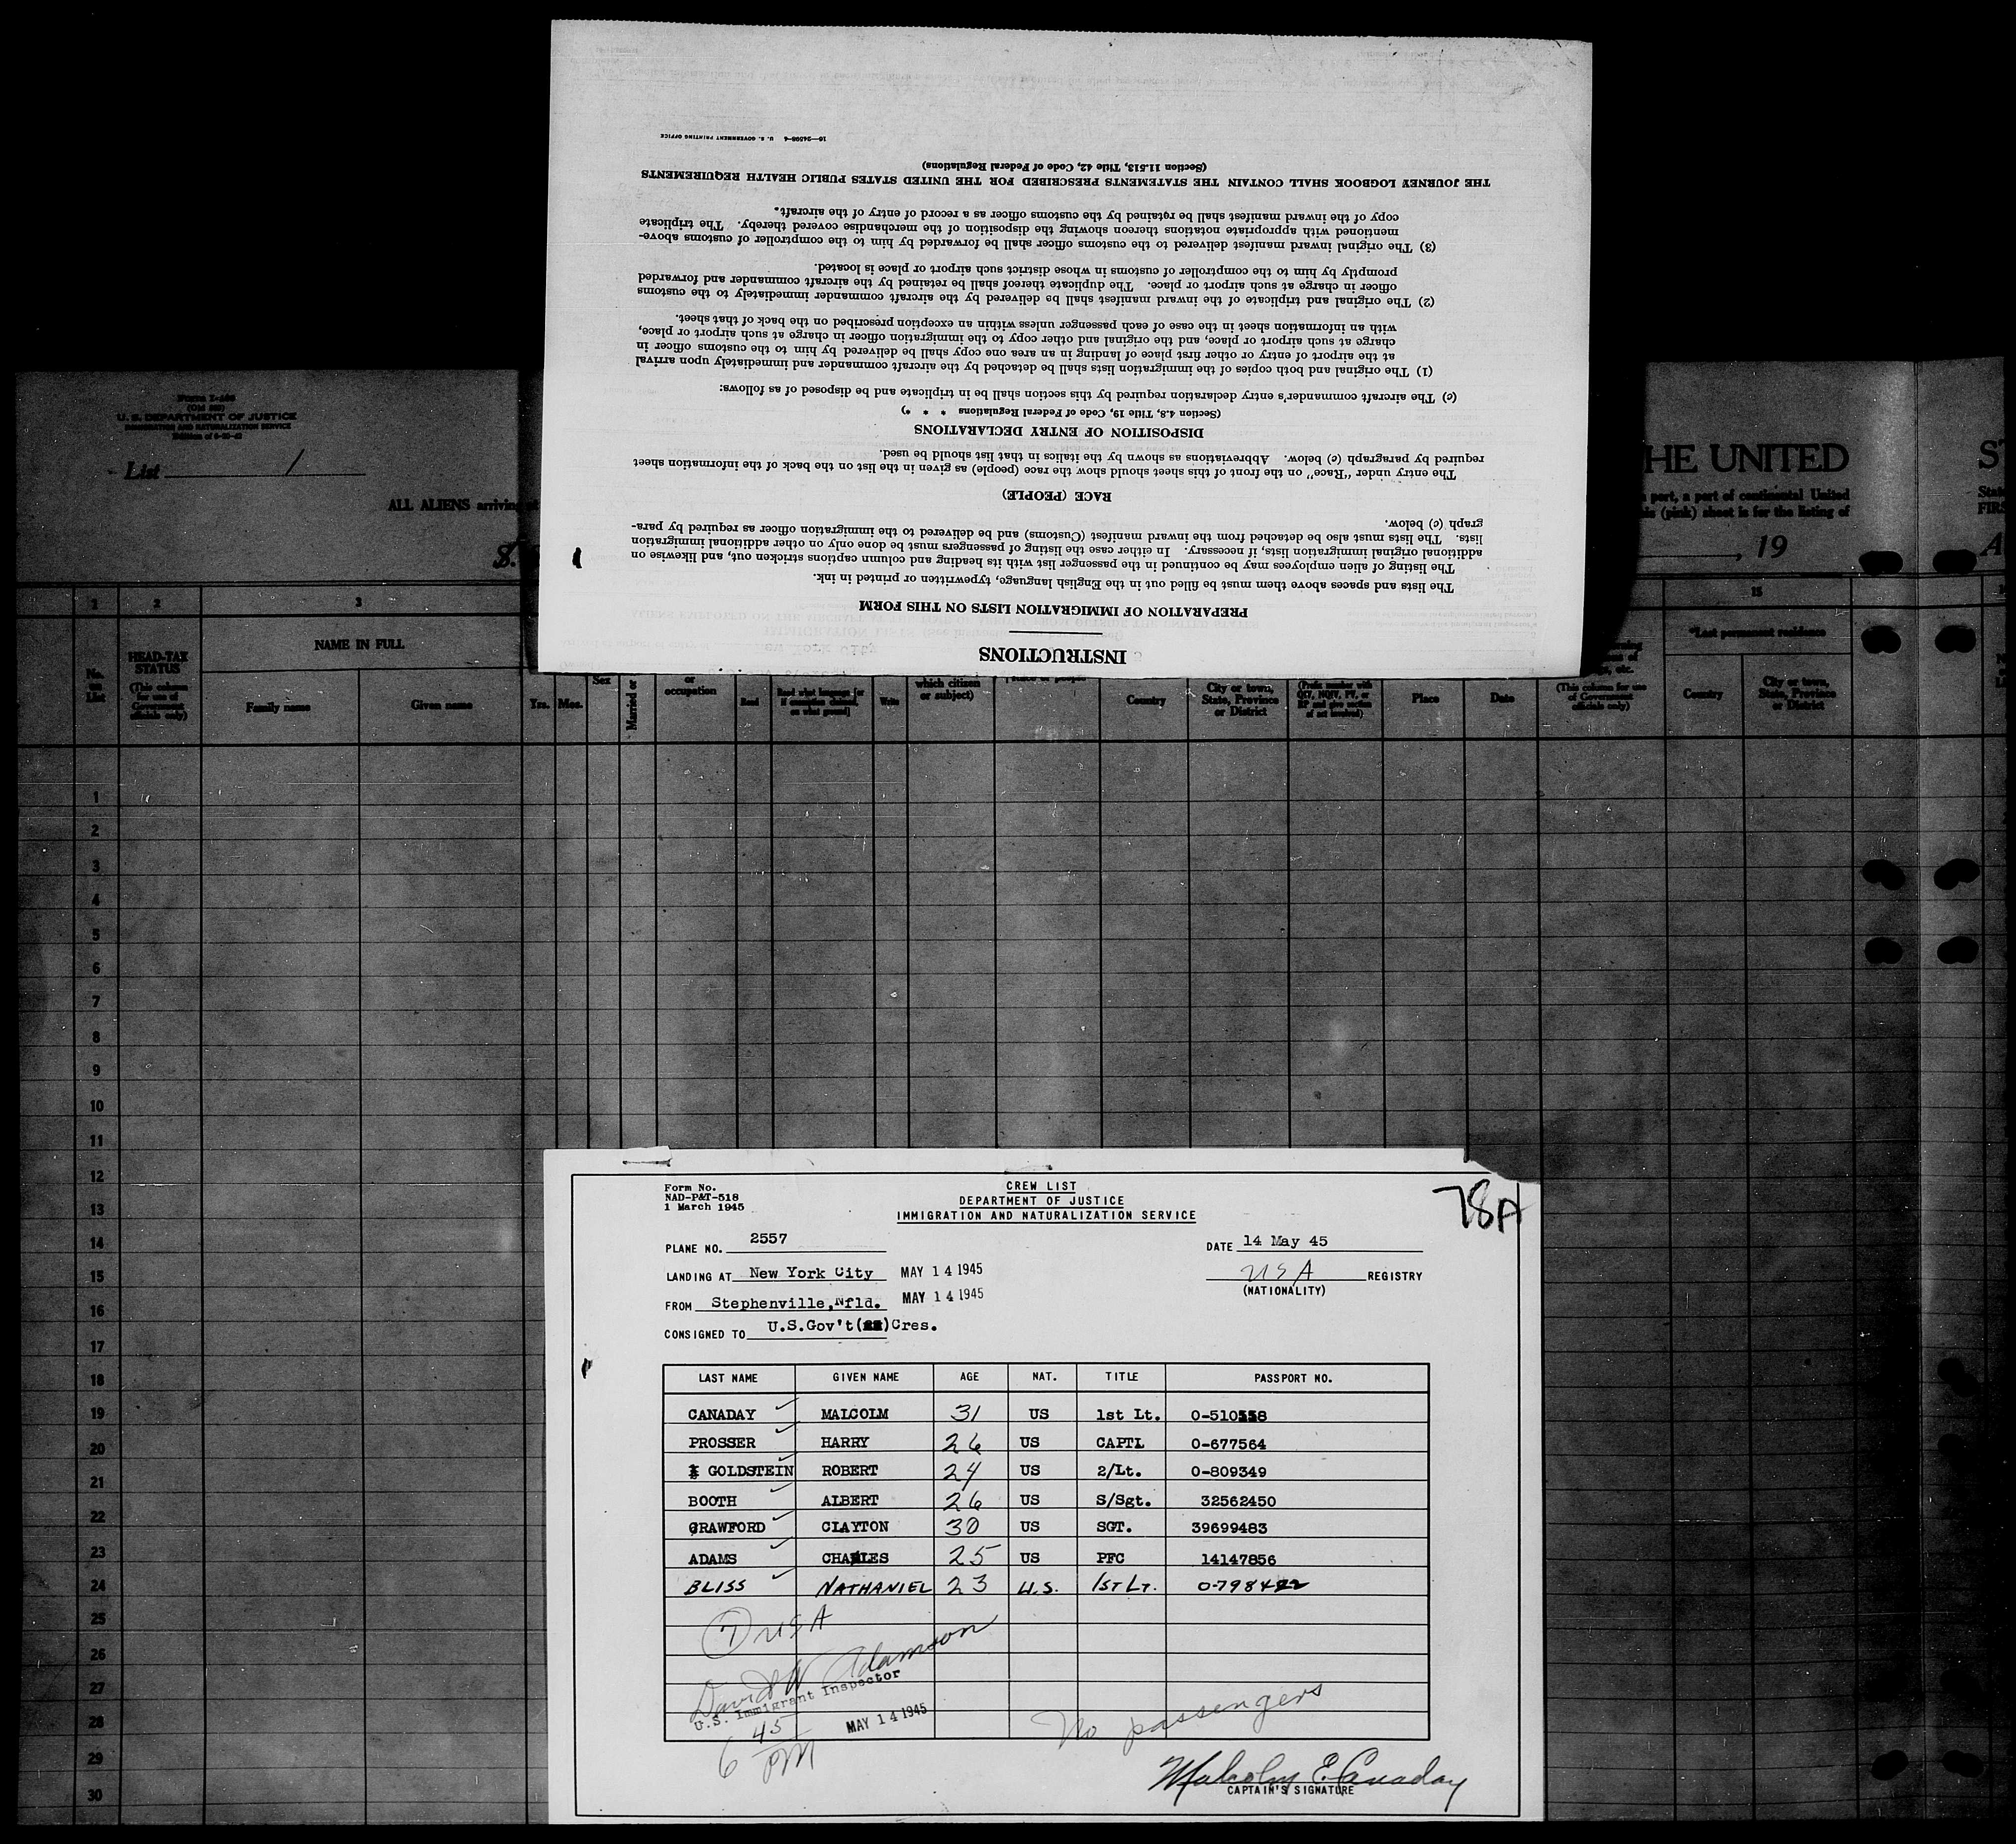 INSTRUCTIONS
PREPARATION OF IMMIGRATION LISTS ON THIS FORM
The lists and spaces above them must be filled out in the English language, typewritten or printed in ink.
The listing of alien employees may be continued in the passenger list with its heading and column captions stricken out, and likewise on
additional original immigration lists, if necessary. In either case the listing of passengers must be done only on other additional immigration
lists. The lists must also be detached from the inward manifest (Customs) and be delivered to the immigration officer as required by para-
graph (c) below.
RACE (PEOPLE)
The entry under "Race" on the front of this sheet should show the race (people) as given in the list on the back of the information sheet
required by paragraph (c) below. Abbreviations as shown by the italics in that list should be used.
DISPOSITION OF ENTRY DECLARATIONS
(Section 4.8, Title 19, Code of Federal Regulations * * *)
(c) The aircraft commander's entry declaration required by this section shall be in triplicate and be disposed of as follows:
(1) The original and both copies of the immigration lists shall be detached by the aircraft commander and immediately upon arrival
at the airport of entry or other first place of landing in an area one copy shall be delivered by him to the customs officer in
charge at such airport or place, and the original and other copy to the immigration officer in charge at such airport or place,
with an information sheet in the case of each passenger unless within an exception prescribed on the back of that sheet.
(2) The original and triplicate of the inward manifest shall be delivered by the aircraft commander immediately to the customs
officer in charge at such airport or place. The duplicate thereof shall be retained by the aircraft commander and forwarded
promptly by him to the comptroller of customs in whose district such airport or place is located.
(3) The original inward manifest delivered to the customs officer shall be forwarded by him to the comptroller of customs above-
mentioned with appropriate notations thereon showing the disposition of the merchandise covered thereby. The triplicate
copy of the inward manifest shall be retained by the customs officer as a record of entry of the aircraft.
THE JOURNEY LOGBOOK SHALL CONTAIN THE STATEMENTS PRESCRIBED FOR THE UNITED STATES PUBLIC HEALTH REQUIREMENTS
(Section 11.513, Title 42, Code of Federal Regulations)
16—24598-4 U. S. GOVERNMENT PRINTING OFFICE
U. S. DEPARTMENT OF JUSTICE
IMMIGRATION AND NATURALIZATION SERVICE
List 1
ALL ALIENS arriving at
S.
HE UNITED
port, a part of continental United
(pink) sheet is for the listing of
, 19
ST
State
FIRS
A
1 2 3 15
No. on List
HEAD-TAX STATUS
(This column for use of Government officials only)
NAME IN FULL
Family name Given name
Yrs. Mos. Sex Married or
or occupation
Read Read what language [or if exemption claimed, on what ground] Write
which citizen or subject)
Country City or town, State, Province or District
Place Date
(This column for use of Government officials only)
*Last permanent residence
Country City or town, State, Province or District
1
2
3
4
5
6
7
8
9
10
11
12
13
14
15
16
17
18
19
20
21
22
23
24
25
26
27
28
29
30
78A
Form No.
NAD-P&T-518
1 March 1945
CREW LIST
DEPARTMENT OF JUSTICE
IMMIGRATION AND NATURALIZATION SERVICE
PLANE NO. 2557 DATE 14 May 45
LANDING AT New York City MAY 14 1945 USA REGISTRY
(NATIONALITY)
FROM Stephenville,Nfld. MAY 14 1945
CONSIGNED TO U.S.Gov't( )Cres.
LAST NAME GIVEN NAME AGE NAT. TITLE PASSPORT NO.
CANADAY MALCOLM 31 US 1st Lt. 0-510558
PROSSER HARRY 26 US CAPTL 0-677564
GOLDSTEIN ROBERT 24 US 2/Lt. 0-809349
BOOTH ALBERT 26 US S/Sgt. 32562450
CRAWFORD CLAYTON 30 US SGT. 39699483
ADAMS CHARLES 25 US PFC 14147856
BLISS NATHANIEL 23 U.S. 1ST LT. 0-798422
7 USA
David W Adamson
U.S. Immigrant Inspector
MAY 14 1945
6 45 PM
No passengers
Malcolm E. Canaday
CAPTAIN'S SIGNATURE